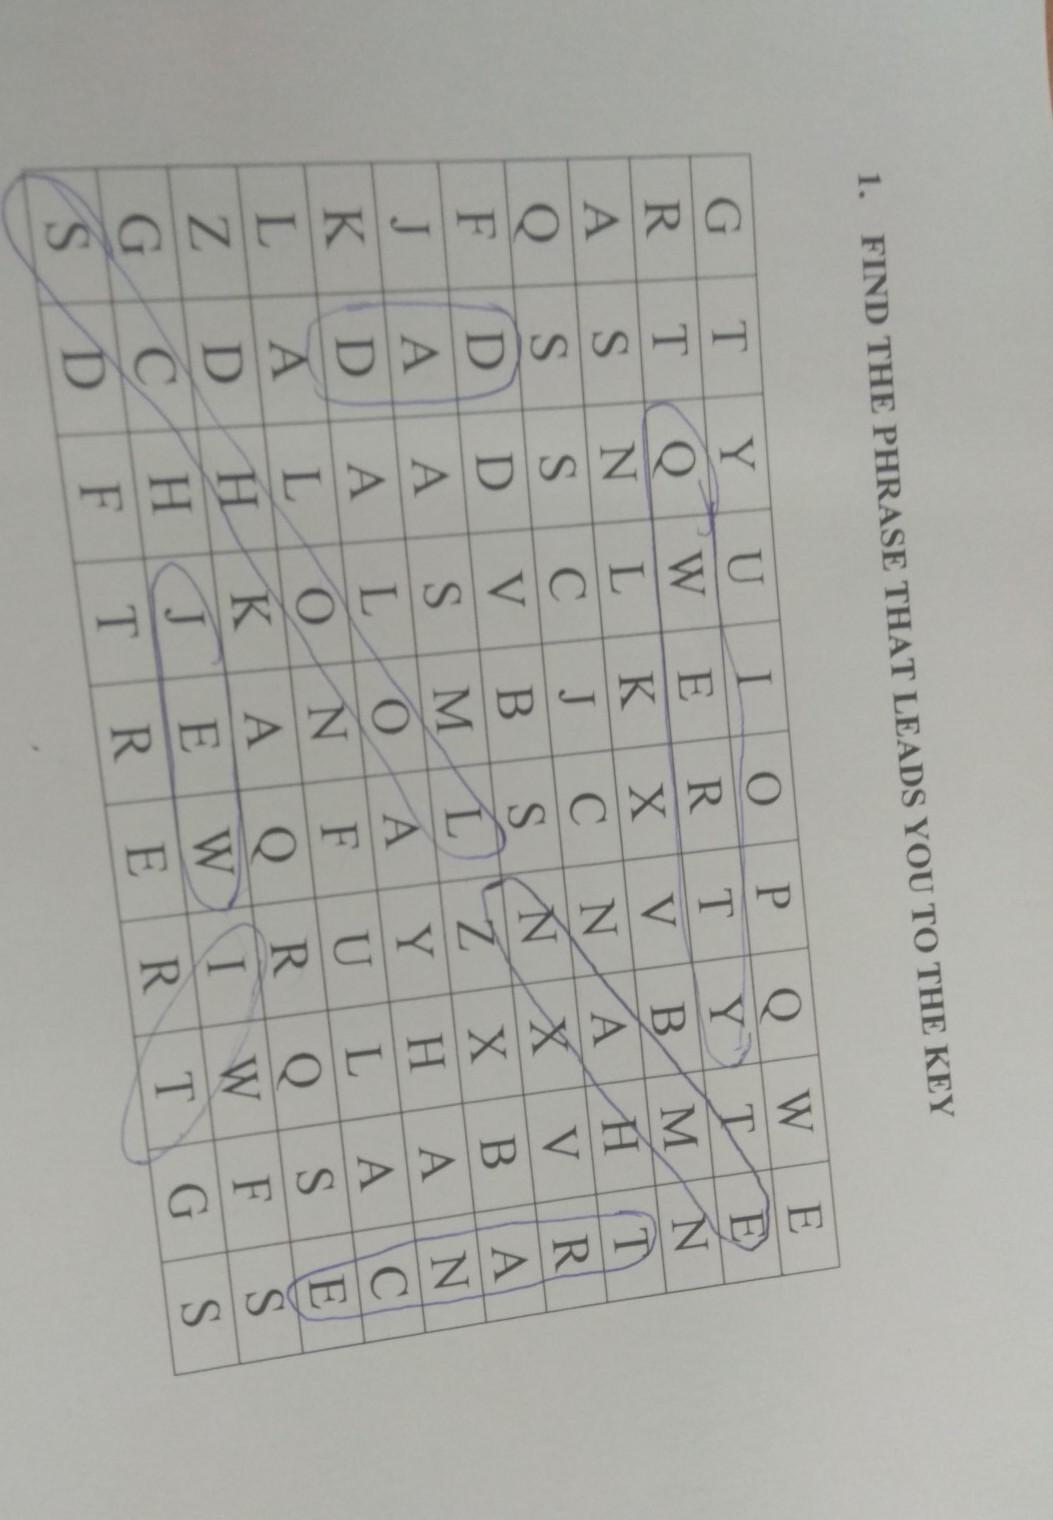 1. FIND THE PHRASE THAT LEADS YOU TO THE KEY
G T Y U I O P Q W E
R T Q W E R T Y T E
A S N L K X V B M N
Q S S C J C N A H T
F D D V B S N X V R
J A A S M L Z X B A
K D A L O A Y H A N
L A L O N F U L A C
Z D H K A Q R Q S E
G C H J E W I W F S
S D F T R E R T G S